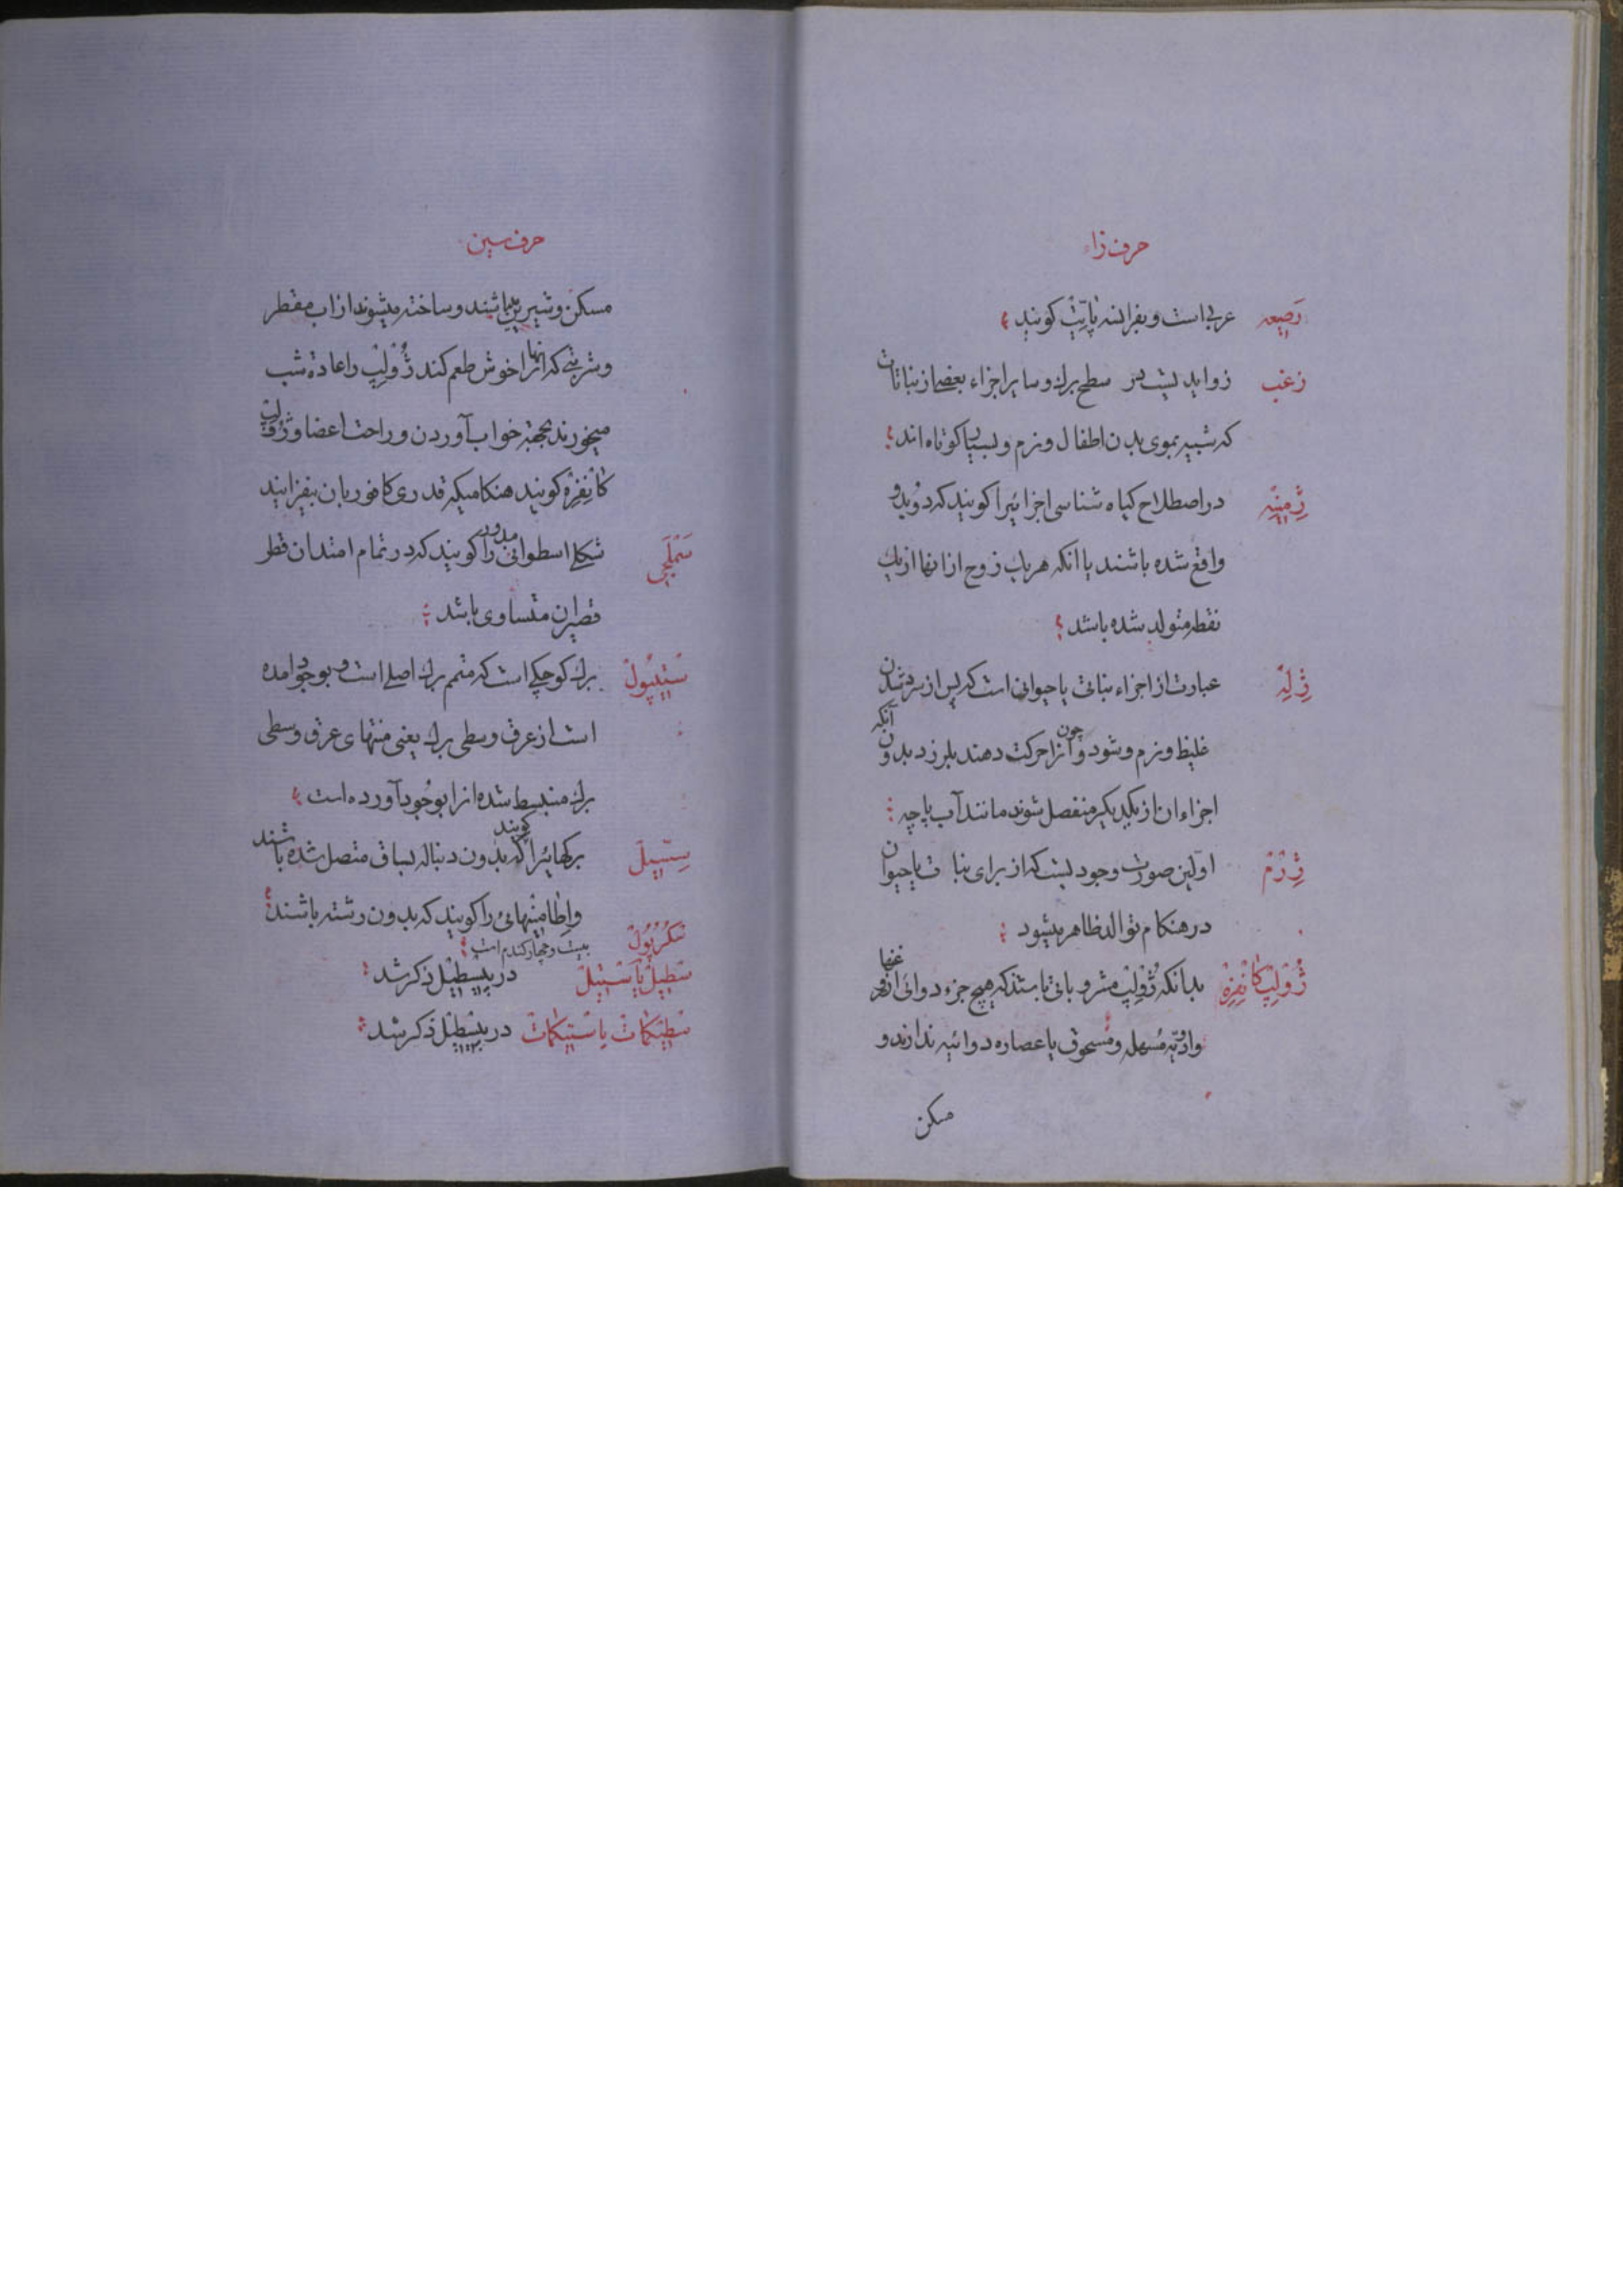 حرف زاء
رَصِیعه عربی است و بفرانسه پاتِتْ کویند
زغب زوایدیست در سطح برك و سایر اجزاء بعضی از نباتات
که شبیه بموی بدن اطفال و نرم و بسیار کوتاه اند
ژِمِینِه در اصطلاح کیاه شناسی اجزائیرا کویند که دو بدو
واقع شده باشند یا انکه هریك زوج از انها از یك
نقطه متولد شده باشد
ژِلِه عبارت از اجزاء نباتی یا حیوانی است که پس از سرد شدن
غلیظ و نرم و شود و چون آنرا حرکت دهند بلرزد بدون آنکه
اجزاء ان از یکدیکر منفصل شوند مانند آب پاچه
ژِرْمْ اوّلین صورت وجودیست که از برای نبات یا حیوان
در هنکام توالد ظاهر میشود
ژُوْلِپْ کانْفِرِهْ بدانکه ژُوْلِپْ مشروباتی باشند که هیچ جزء دوائی از
وادویّه مُسهله و مسحوق یا عصاره دوائیه ندارند و
مسکن
حرف سین
مسکن و شیرین میباشند و ساخته میشوند از اب مقطر
و شربتی که انها را خوش طعم کند ژُوْلِپْ را عادة شب
میخورند بجهة خواب آوردن و راحت اعضا و ژولپ
کانْفِرِهْ کویند هنکامیکه قدری کافور بان بیفزایند
سَمْلَجی شکلی اسطوانی مدور را کویند که در تمام امتدان قطر
قصیران متساوی باشد
سْتیپُولْ برك کوچکی است که متمم برك اصلی است و بوجود امده
است از عرق وسطی برك یعنی منتهای عرق وسطی
برك منبسط شده انرا بوجُود آورده است
سِسیلَ برکهائیرا کویند که بدون دنباله بساق متصل شده باشند
واِطامِنهائی را کویند که بدون رشته باشند
سْکُرُپُولْ بیست و چهار کندم است
سْطیلْ یا سْتیلْ در پیسطیل ذکر شد
سْطِیکماتْ یا سْتِیکماتْ در پیسطیل ذکر شد